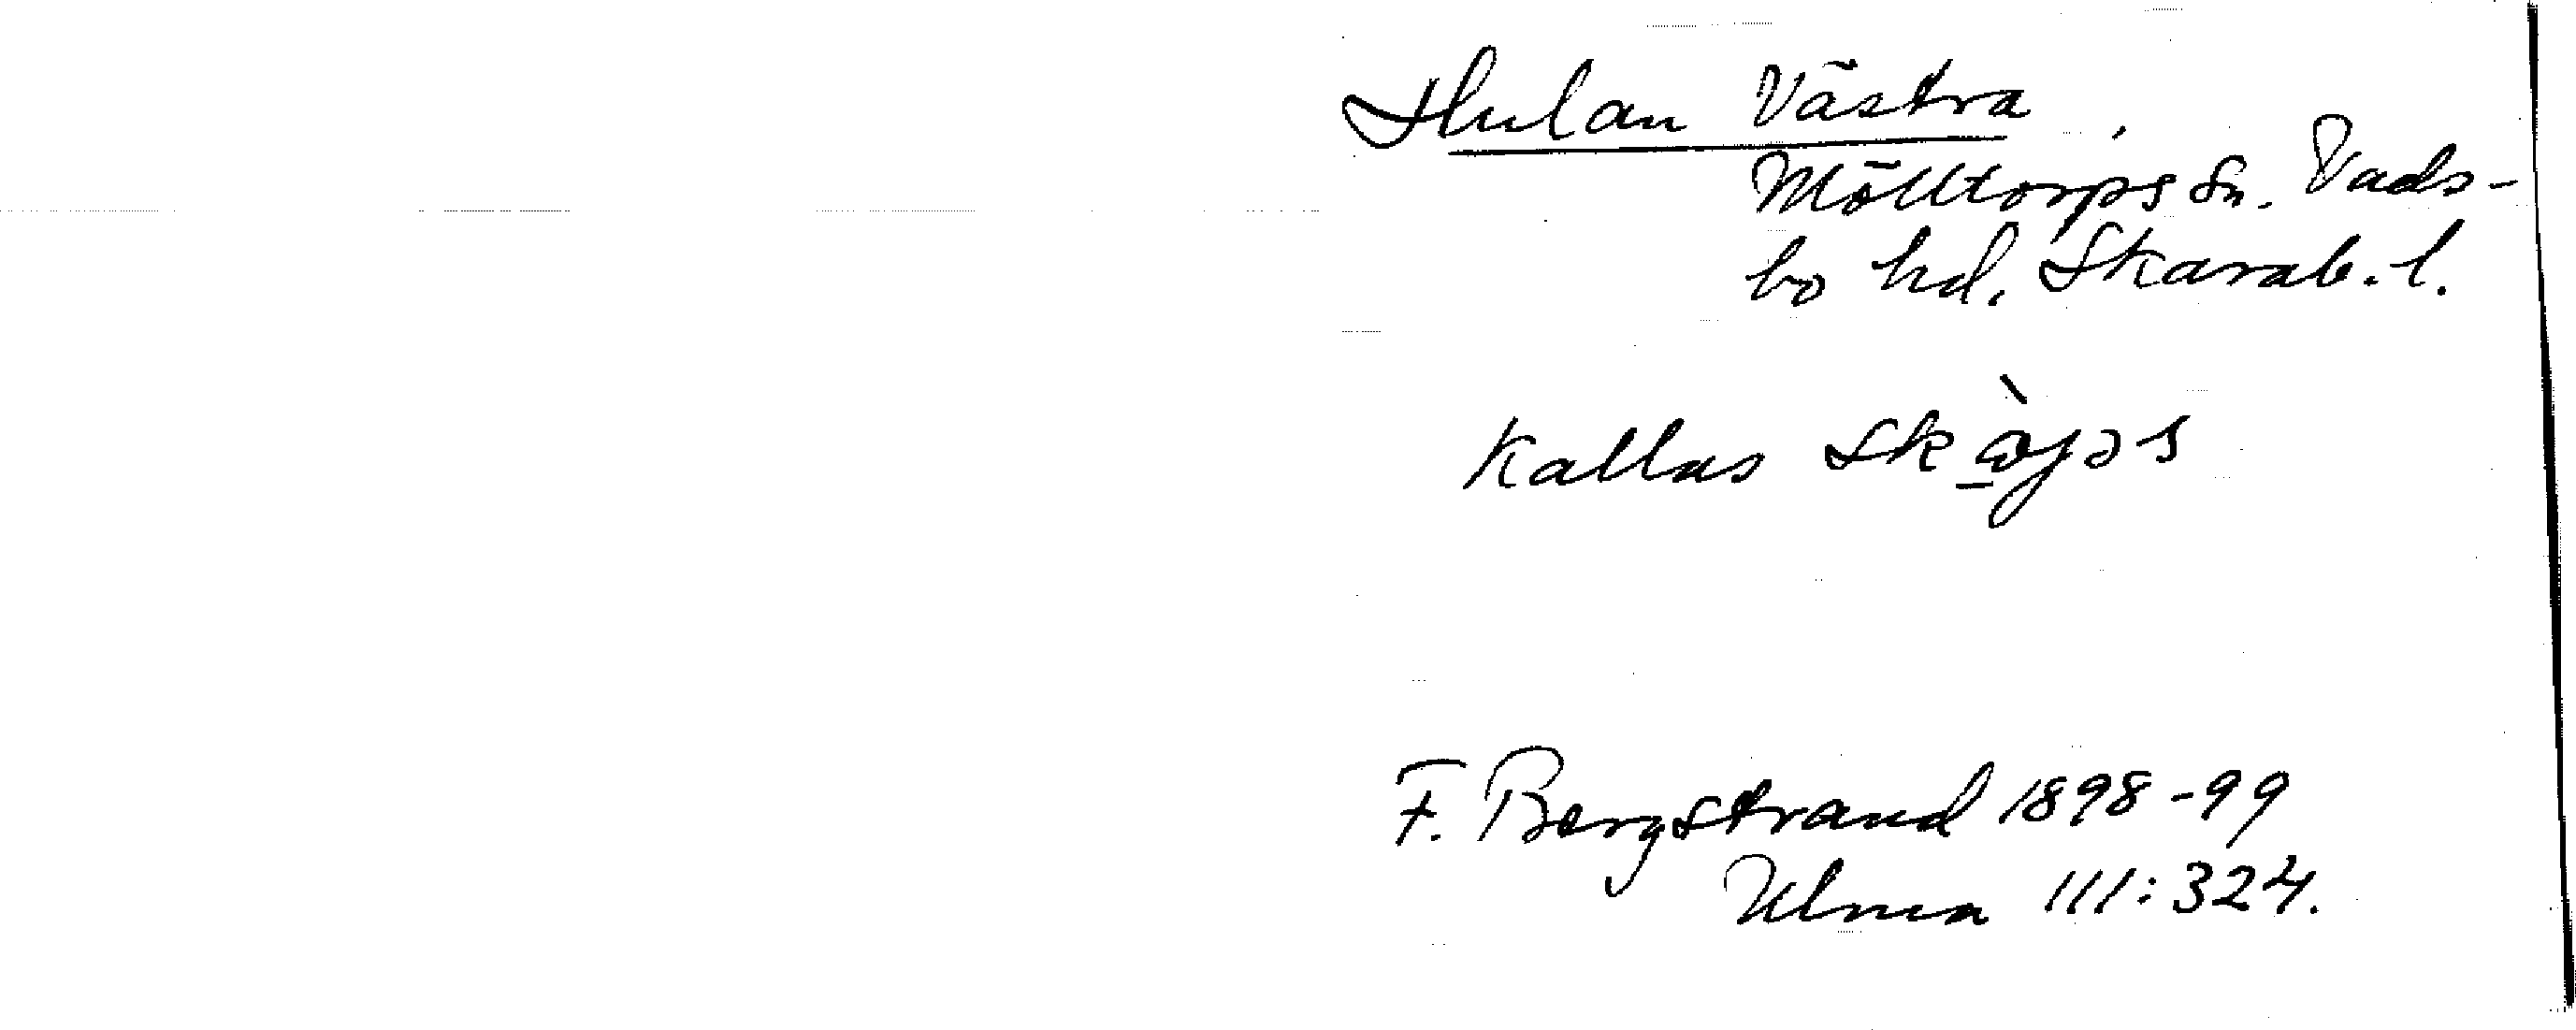 Hulan Västra,
Mölltorps sn. Vads-
bo hd. Skarab. l.
Kallas
F. Bergstrand 1898-99
Ulma 111:324.